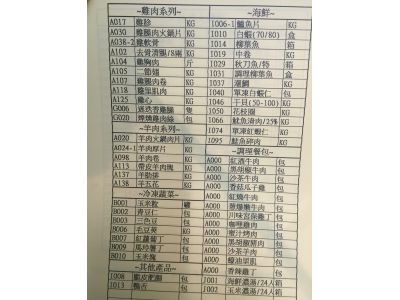 ~雞肉系列~
A017 雞腿 KG
A030 雞腿肉火鍋片 KG
A038-2 雞軟骨 KG
A102 去骨清腿/8兩 KG
A104 雞胸肉 斤
A105 二節翅 KG
A107 雞腿肉卷 KG
A118 雞里肌肉 KG
A125 雞心 KG
G006 迷迭香雞腿 隻
G020 煙燻雞肉絲 包
~羊肉系列~
A020 羊肉火鍋肉片 KG
A024-1 羊肉厚片 KG
A098 羊肉卷 KG
A113 帶皮羊肉塊 KG
A137 羊肋排 KG
A138 羊五花 KG
~冷凍蔬菜~
B001 玉米粒 罐
B002 青豆仁 包
B003 三色豆 包
B006 毛豆莢 KG
B007 紅蘿蔔丁 包
B009 馬玲薯丁 包
B010 玉米塊 包
~其他產品~
I008 脆皮肥腸 包
I013 鴨舌 包
~海鮮~
I006-1 鱸魚片 KG
I010 白蝦(70/80) 盒
I014 柳葉魚 箱
I019 中卷 KG
I029 秋刀魚/特 箱
I031 調理柳葉魚 盒
I037 KG
I040 單凍白蝦仁 包
I046 干貝(50-100) KG
I066 魷魚清肉/25% KG
I074 單凍紅蝦仁 KG
I095 魷魚碎肉 KG
~調理餐包~
A000 紅酒牛肉 包
A000 黑胡椒牛肉 包
A000 沙茶牛肉 包
A000 香菇瓜子雞 包
A000 紅燒牛肉 包
A000 蔥爆嫩牛肉 包
A000 川味宮保雞丁 包
A000 咖哩雞肉 包
A000 蜜汁烤肉 包
A000 黑胡椒豬肉 包
A000 沙茶羊肉 包
A000 蠔油里肌 包
A000 香辣雞丁 包
J001 海鮮濃湯/24人 箱
J002 玉米濃湯/24人 箱